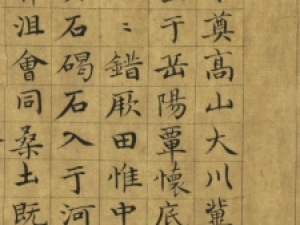 奠高山大川冀
于岳陽覃懷底
〻錯厥田惟中
石碣石入于河
沮會同桑土既